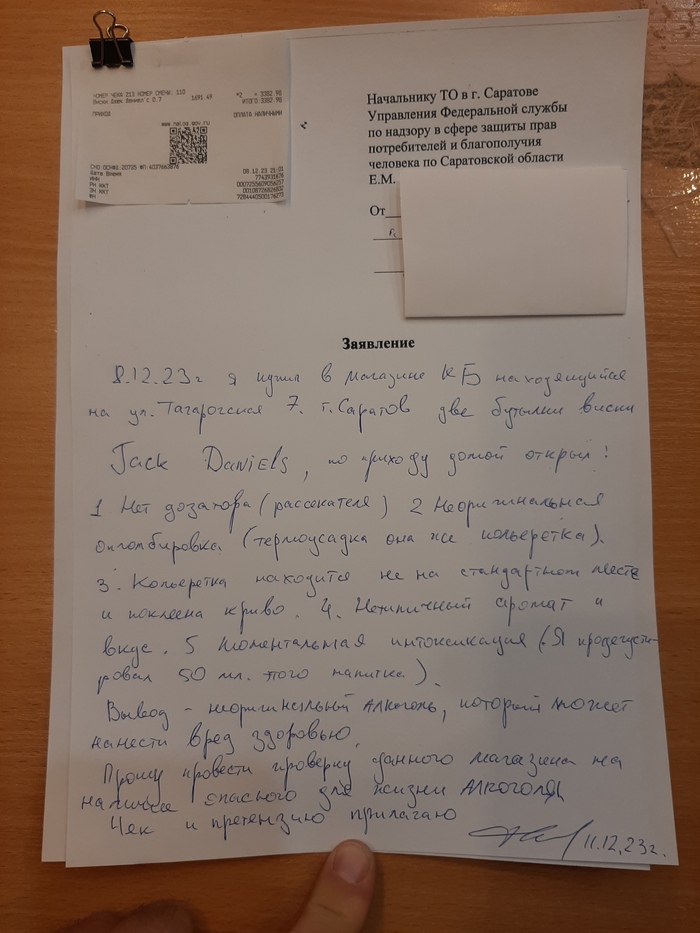 НОМЕР ЧЕКА 213 НОМЕР СМЕНЫ: 110
1691.49 *2 = 3382.98
ИТОГО 3382.98
ПРИХОД ОПЛАТА НАЛИЧНЫМИ
www.nalog.gov.ru
08.12.23 21:01
ИНН
РН ККТ
ЗН ККТ
ФН
Начальнику ТО в г. Саратове
Управления Федеральной службы
по надзору в сфере защиты прав
потребителей и благополучия
человека по Саратовской области
Е.М.
От
Заявление
8.12.23г я купил в магазине КБ находящийся
на ул. Тагарогская 7. г. Саратов две бутылки виски
Jack Daniels, по приходу домой открыл:
1 Нет дозатора (рассекателя) 2 Неоригинальная
(термоусадка она же кольеретка).
3. Кольеретка находится не на стандартном месте
и поклеена криво. 4. Нетипичный аромат и
вкус. 5 Моментальная интоксикация (Я продегусти-
ровал 50 мл. этого напитка).
Вывод - неоригинальный Алкоголь, который может
нанести вред здоровью.
Прошу провести проверку данного магазина на
наличие опасного для жизни Алкоголя
Чек и претензию прилагаю
11.12.23г.